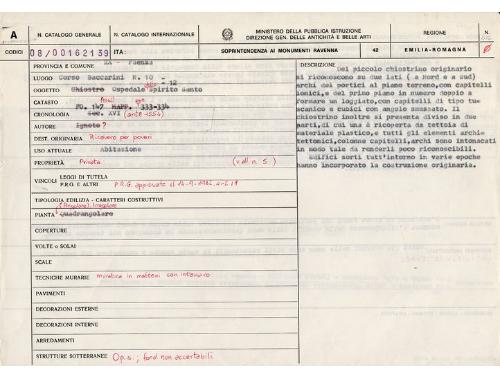 A
N. CATALOGO GENERALE
N. CATALOGO INTERNAZIONALE
MINISTERO DELLA PUBBLICA ISTRUZIONE
DIREZIONE GEN. DELLE ANTICHITÀ E BELLE ARTI
REGIONE
N.
CODICI
08/00162139
ITA:
SOPRINTENDENZA AI MONUMENTI RAVENNA
42
EMILIA-ROMAGNA
PROVINCIA E COMUNE RA - Faenza
LUOGO Corso Baccarini N. 10 - 12
OGGETTO Chiostro Ospedale Spirito Santo
CATASTO FO. 147 MAPP. 333-334
CRONOLOGIA Sec. XVI (ante 1554)
AUTORE Ignoto?
DEST. ORIGINARIA Ricovero per poveri
USO ATTUALE Abitazione
PROPRIETÀ Privata (v. all. n. 5)
VINCOLI LEGGI DI TUTELA
P.R.G. E ALTRI P.R.G. approvato il
TIPOLOGIA EDILIZIA - CARATTERI COSTRUTTIVI
PIANTA Quadrangolare
COPERTURE
VOLTE o SOLAI
SCALE
TECNICHE MURARIE muratura in mattoni con intonaco
PAVIMENTI
DECORAZIONI ESTERNE
DECORAZIONI INTERNE
ARREDAMENTI
STRUTTURE SOTTERRANEE fond. non accertabili
DESCRIZIONE
Del piccolo chiostrino originario
si riconoscono su due lati (a Nord e a sud)
archi dei portici al piano terreno, con capitelli
ionici, e del primo piano in numero doppio a
formare un loggiato, con capitelli di tipo tu=
scanico e cubici con angolo smussato. Il
chiostrino inoltre si presenta diviso in due
parti, di cui una è ricoperta da tettoia di
materiale plastico, e tutti gli elementi archi=
tettonici, colonne capitelli, archi sono intonacati
in modo tale da renderli poco riconoscibili.
Edifici sorti tutt'intorno in varie epoche
hanno incorporato la costruzione originaria.